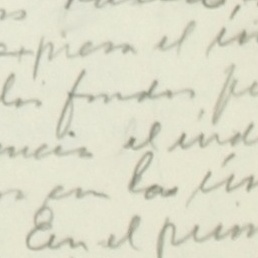 expresa el in
los fondos, p
encia el ind
os con las in
En el prim